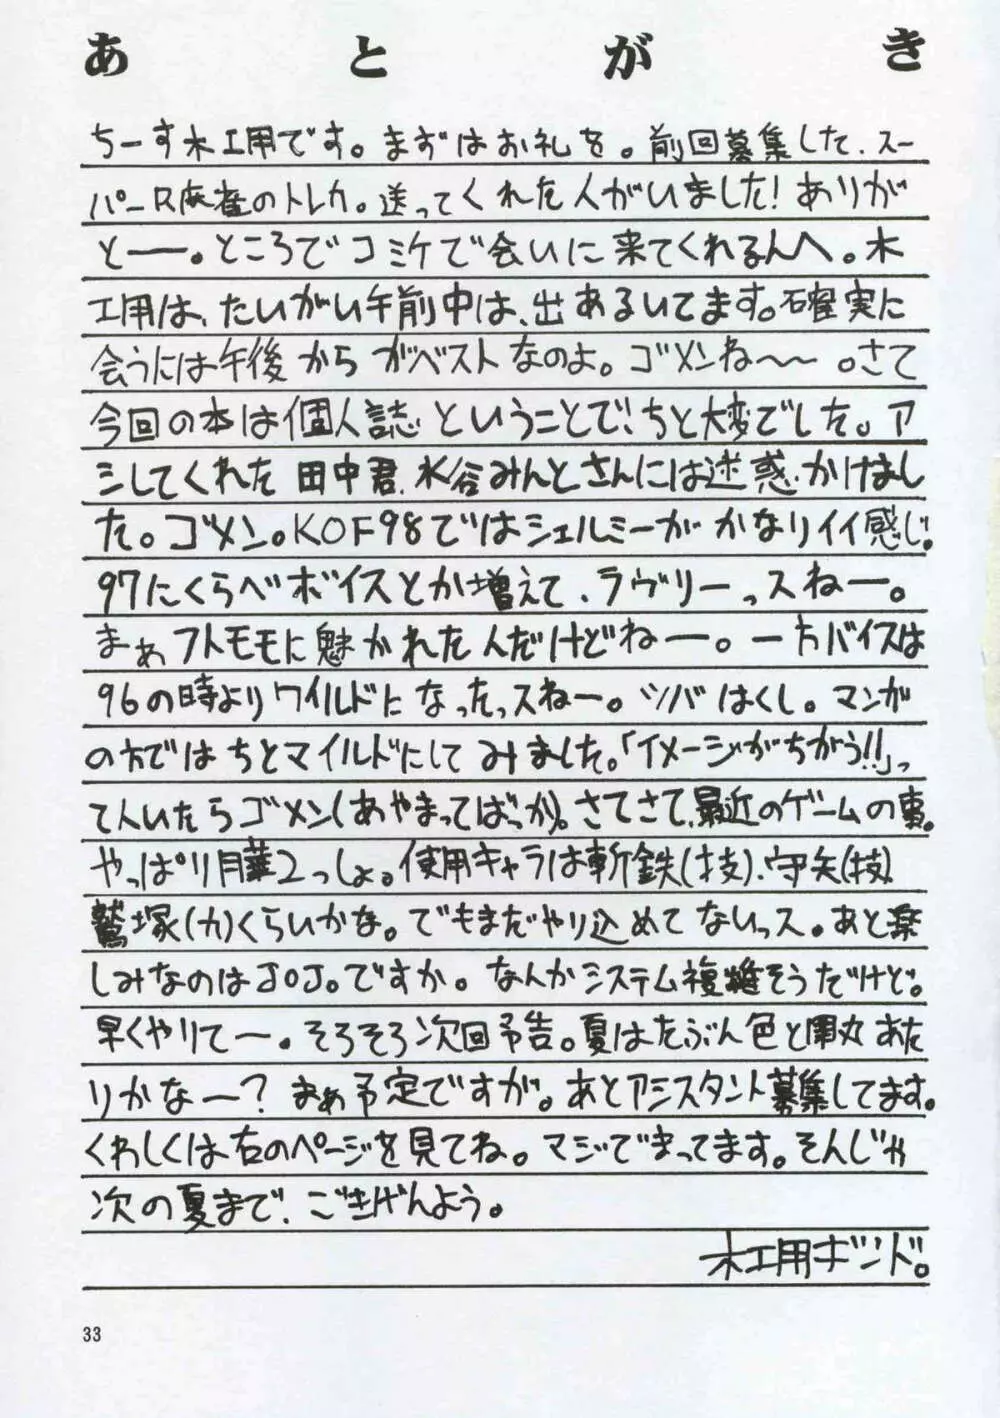 あとがき
ちーす木工用です。まずはお礼を。前回募集した、スー
パーR麻雀のトレカ。送ってくれた人がいました!ありが
とー。ところでコミケで会いに来てくれるんへ。木
工用は、たいがい午前中は、出あるいてます。確実に
会うには午後からがベストなのよ。ゴメンね〜〜。さて
今回の本は個人誌ということで、ちと大変でした。ア
シしてくれた田中君、水谷みんとさんには迷惑かけまし
た。ゴメン。KOF98ではシェルミーがかなりイイ感じ。
97にくらべボイスとか増えて、ラヴリーっスねー。
まぁフトモモに魅かれた人だけどねー。一方バイスは
96の時よりワイルドになったっスねー。ツバはくし。マンガ
の方ではちとマイルドにしてみました。「イメージがちがう!!」っ
て人いたらゴメン(あやまってばっか)。さてさて、最近のゲームの事。
やっぱり月華2っしょ。使用キャラは斬鉄(技)、守矢(技)
鷲塚(力)くらいかな。でもまだやり込めてないっス。あと楽
しみなのはJOJO。ですか。なんかシステム複雑そうだけど。
早くやりてー。そろそろ次回予告。夏はたぶん色と蘭丸あた
りかなー?まぁ予定ですが。あとアシスタント募集してます。
くわしくは右のページを見てね。マジでまってます。そんじゃ
次の夏まで、ごきげんよう。
木工用ボンド。
33